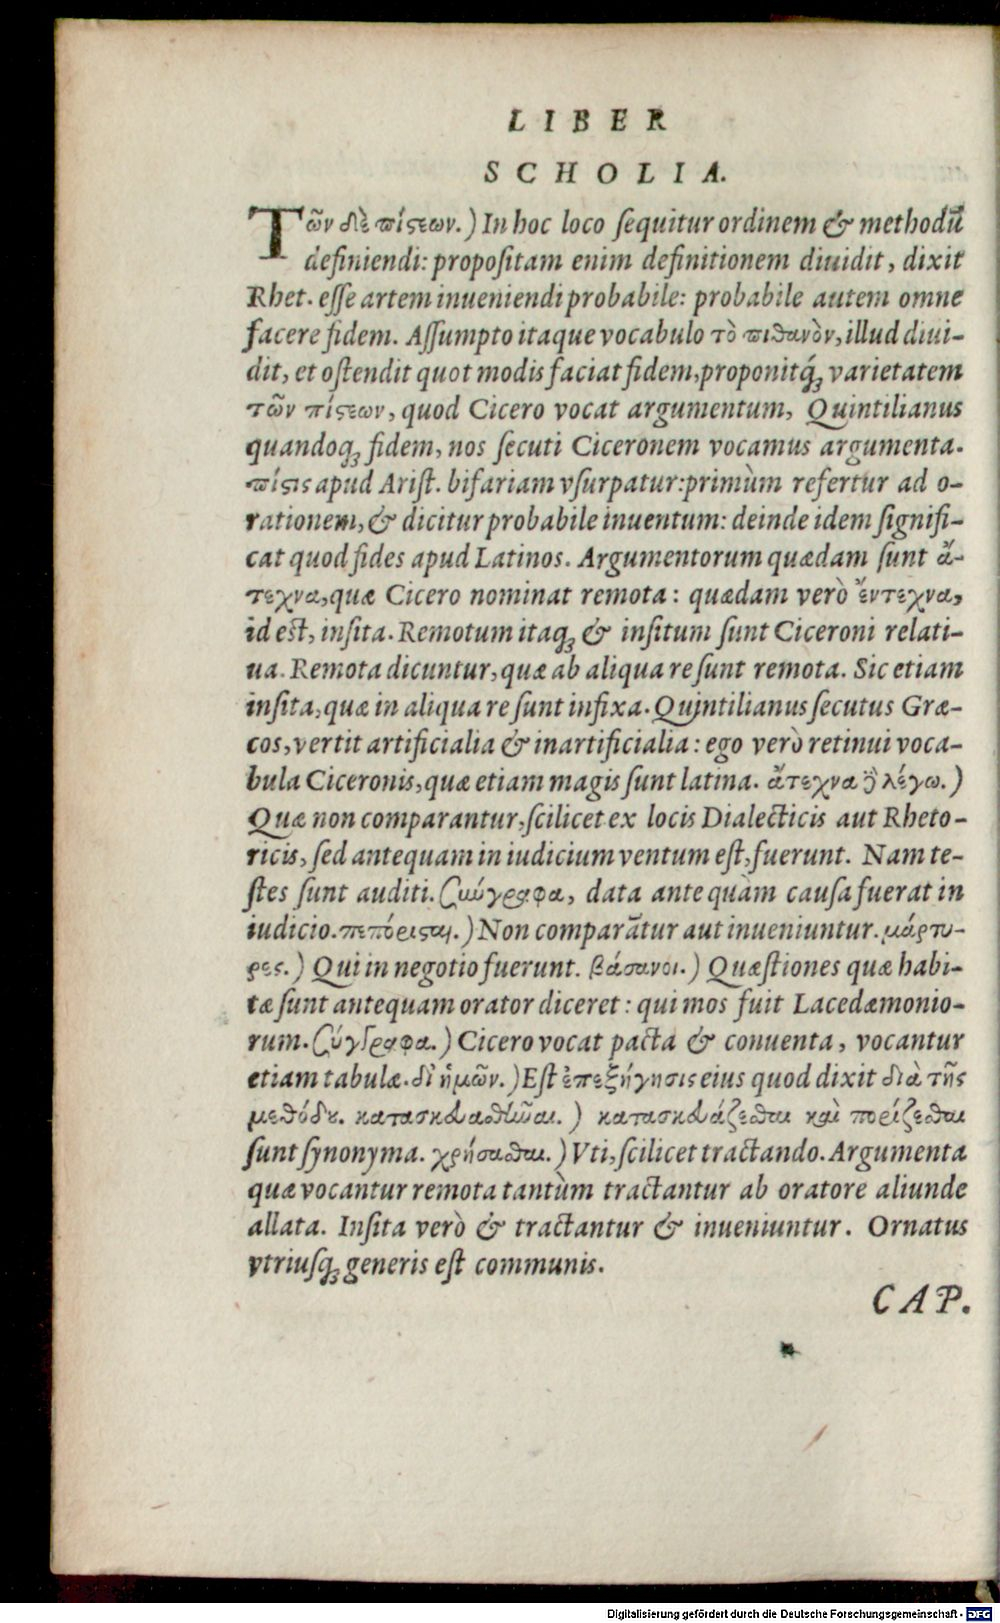 LIBER
SCHOLIA.
Τῶν δὲ πίστεων.) In hoc loco sequitur ordinem & methodū
definiendi: propositam enim definitionem diuidit, dixit
Rhet. esse artem inueniendi probabile: probabile autem omne
facere fidem. Assumpto itaque vocabulo τὸ πιθανὸν, illud diui-
dit, et ostendit quot modis faciat fidem, proponitq́; varietatem
τῶν πίστεων, quod Cicero vocat argumentum, Quintilianus
quandoq; fidem, nos secuti Ciceronem vocamus argumenta.
πίστις apud Arist. bifariam vsurpatur: primùm refertur ad o-
rationem, & dicitur probabile inuentum: deinde idem signifi-
cat quod fides apud Latinos. Argumentorum quædam sunt ἄ-
τεχνα, quæ Cicero nominat remota: quædam verò ἔντεχνα,
id est, insita. Remotum itaq; & insitum sunt Ciceroni relati-
ua. Remota dicuntur, quæ ab aliqua re sunt remota. Sic etiam
insita, quæ in aliqua re sunt infixa. Quintilianus secutus Græ-
cos, vertit artificialia & inartificialia: ego verò retinui voca-
bula Ciceronis, quæ etiam magis sunt latina. ἄτεχνα δὲ λέγω.)
Quæ non comparantur, scilicet ex locis Dialecticis aut Rheto-
ricis, sed antequam in iudicium ventum est, fuerunt. Nam te-
stes sunt auditi. σύγγραφα, data ante quàm causa fuerat in
iudicio. πεπόρισται.) Non comparātur aut inueniuntur. μάρτυ-
ρες.) Qui in negotio fuerunt. βάσανοι.) Quæstiones quæ habi-
tæ sunt antequam orator diceret: qui mos fuit Lacedæmonio-
rum. σύγγραφα.) Cicero vocat pacta & conuenta, vocantur
etiam tabulæ. δι' ἡμῶν.) Est ἐπεξήγησις eius quod dixit διὰ τῆς
μεθόδου. κατασκευασθῆναι.) κατασκευάζεσθαι καὶ πορίζεσθαι
sunt synonyma. χρήσασθαι.) Vti, scilicet tractando. Argumenta
quæ vocantur remota tantùm tractantur ab oratore aliunde
allata. Insita verò & tractantur & inueniuntur. Ornatus
vtriusq; generis est communis.
CAP.
Digitalisierung gefördert durch die Deutsche Forschungsgemeinschaft - DFG